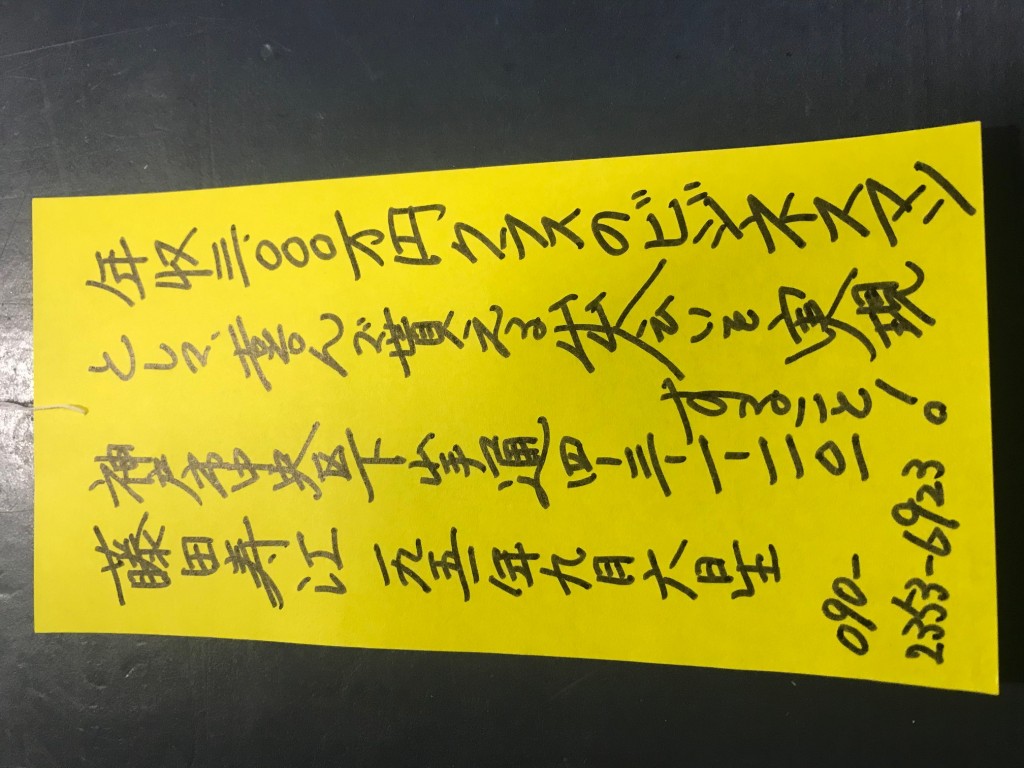 年収三〇〇〇万円クラスのビジネスマン
として、喜んで貰える出会いを実現
すること!。
神戸市中央区下山手通四ー三ー一ー二〇一
藤田寿江 一九五一年九月六日生
090-
2353-6923